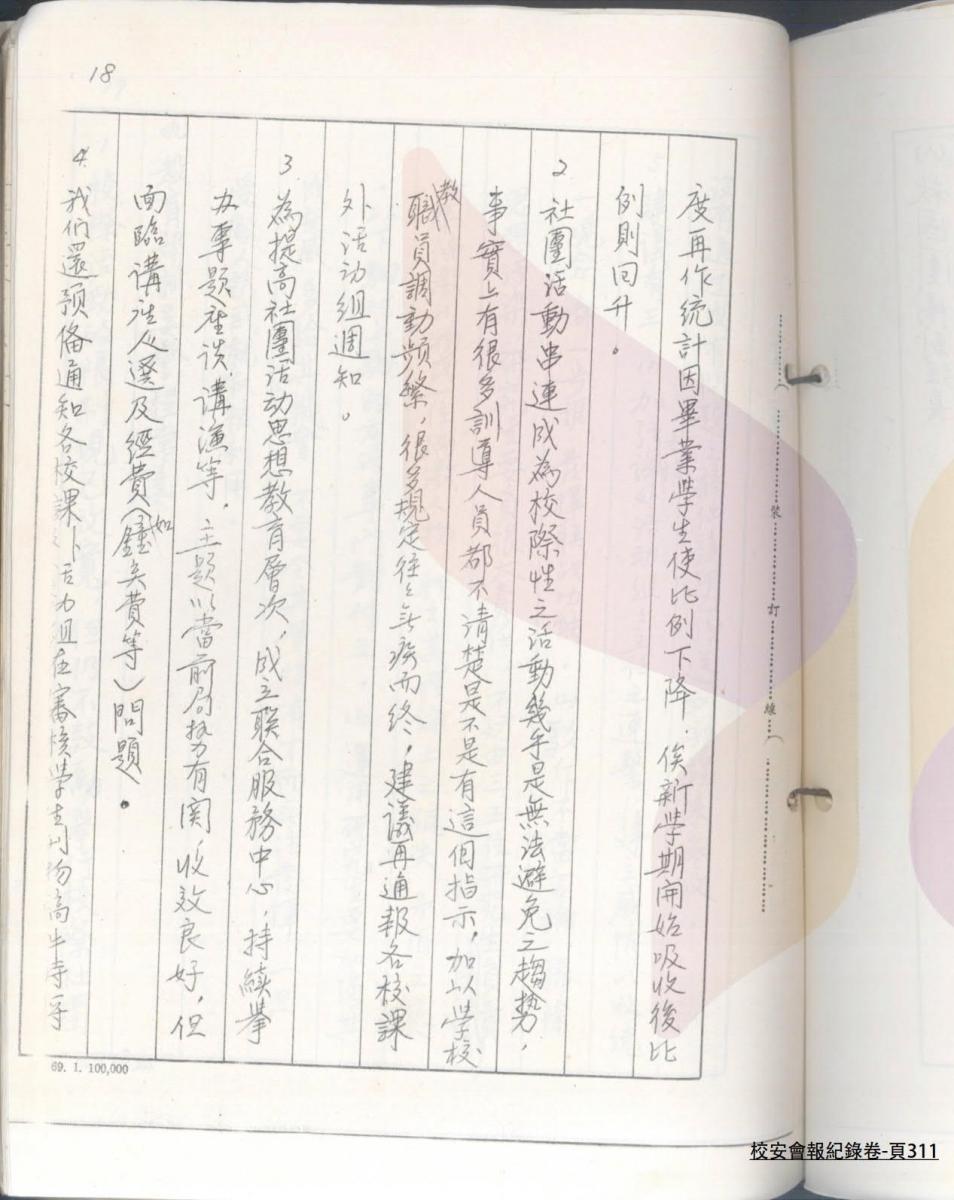 18
度再作統計因畢業學生使比例下降．俟新學期開始吸收後比
例則回升。
2 社團活動串連成為校際性之活動幾乎是無法避免之趨勢，
事實上有很多訓導人員都不清楚是不是有這個指示，加以學校
教職員調動頻繁，很多規定往々無疾而終，建議再通報各校課
外活动組週知。
3. 為提高社團活动思想教育層次，成立聯合服務中心，持續擧
办專題座谈、講演等，主題以當前局勢有関，收效良好，但
面臨講座人選及經費（如鐘点費等）問題。
4. 我們還預俻通知各校課外活动組在審核學生刊物
裝
訂
線
69. 1. 100,000
校安會報紀錄卷-頁311